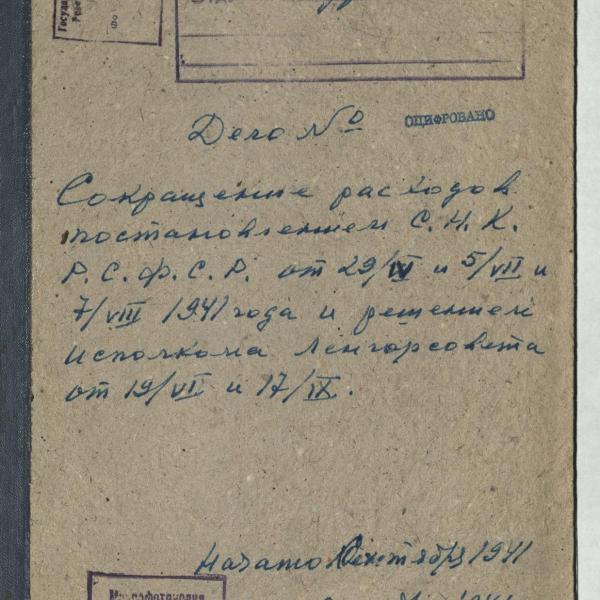 Дело №
ОЦИФРОВАНО
Сокращение расходов
постановлением С.Н.К.
Р.С.Ф.С.Р. от 29/IV и 5/VII и
7/VIII 1941 года и решением
исполкома Ленгорсовета
от 19/VI и 17/IX.
Начато Сентября 1941
Микрофотокопия
1941